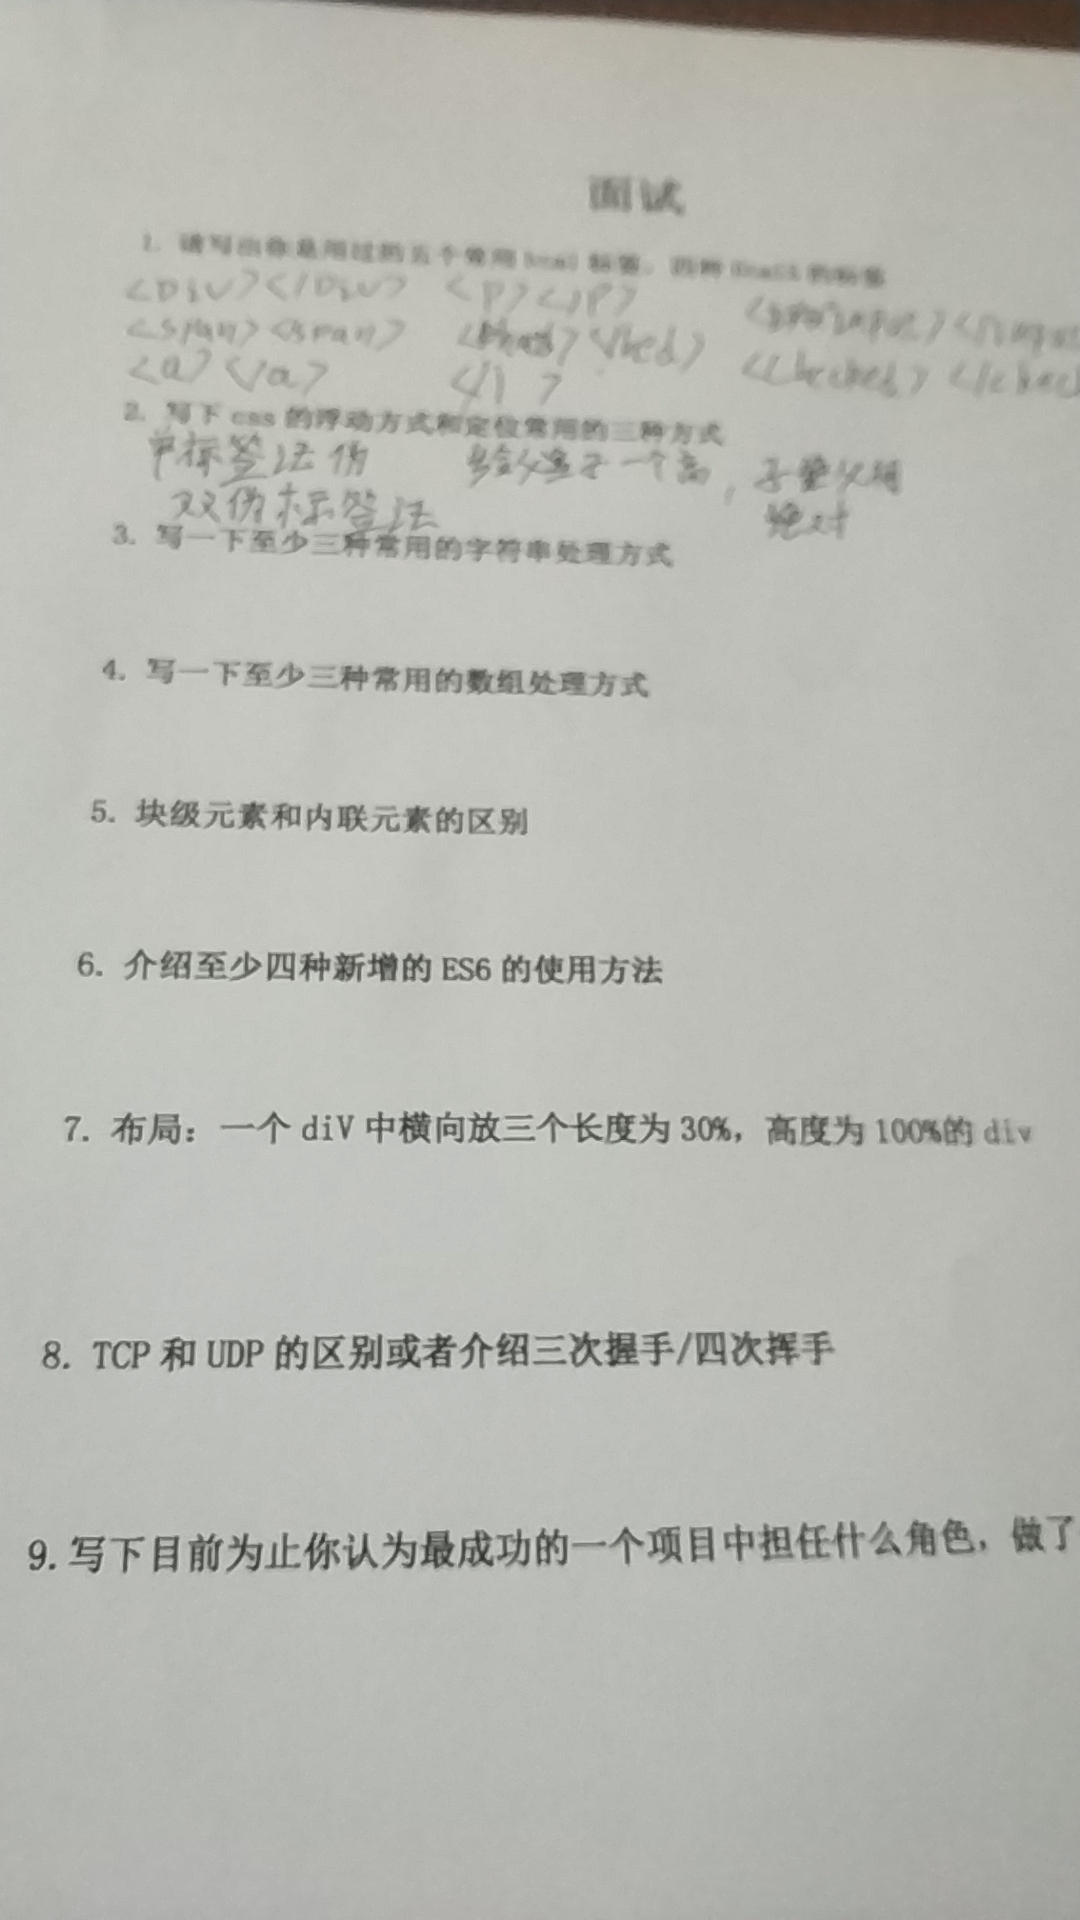 面试
1. 请写出你是用过的五个常用 html 标签，四种 Html5 的标签
<Div></Div> <p></p>
<span><span>
<a></a> </1 >
2. 写下 css 的浮动方式和定位常用的三种方式
单标签法 伪 给父盒子一个高，子绝父相
双伪标签法 绝对
3. 写一下至少三种常用的字符串处理方式
4. 写一下至少三种常用的数组处理方式
5. 块级元素和内联元素的区别
6. 介绍至少四种新增的 ES6 的使用方法
7. 布局：一个 diV 中横向放三个长度为 30%，高度为 100%的 div
8. TCP 和 UDP 的区别或者介绍三次握手/四次挥手
9. 写下目前为止你认为最成功的一个项目中担任什么角色，做了